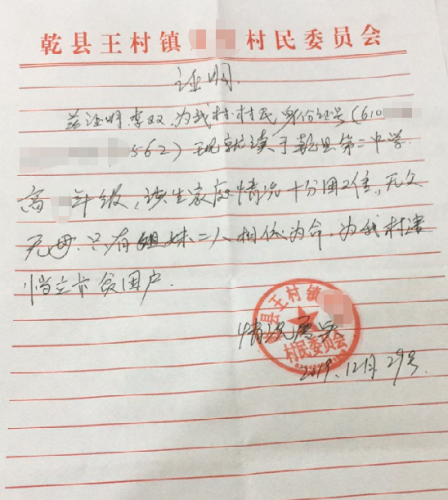 乾县王村镇 村民委员会
证明
兹证明李双,为我村村民,身份证号(610
562)现就读于乾县第二中学
高 年级,该生家庭情况十分困难,无父
无母,只有姐妹二人相依为命,为我村建
档立卡贫困户.
情况属实
2019.12月29号
乾县王村镇
村民委员会